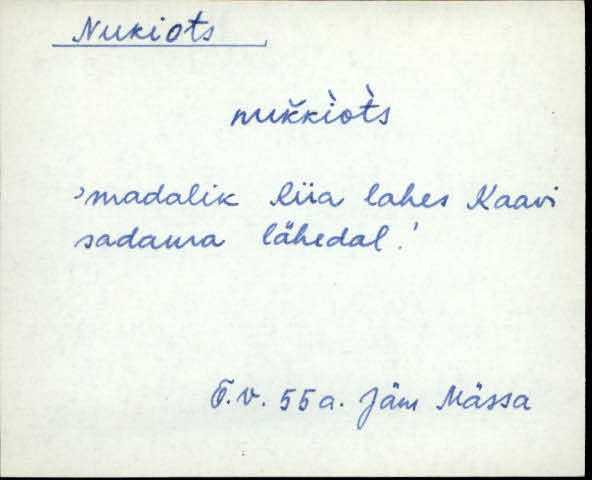 Nukiots
nuk̆kìòt̀s
'madalik Riia lahes Kaavi
sadama lähedal.'
T.v. 55a. Jäm Mässa